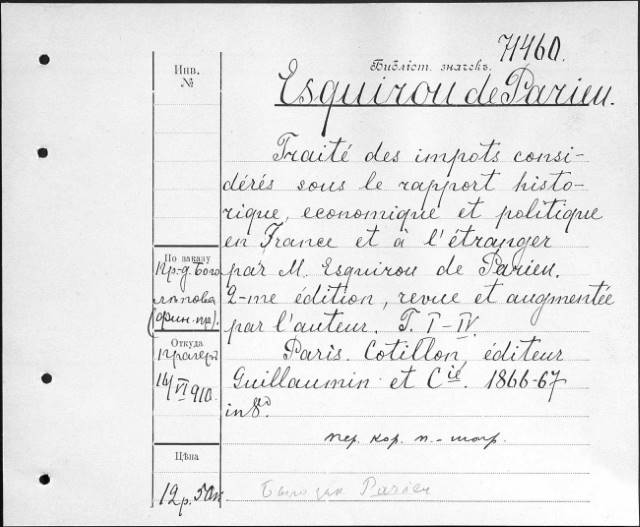 71460.
Библіот. значекъ.
Инв.
№
Esquirou de Parieu.
Traité des impots consi-
dérés sous le rapport histo-
rique, economique et politique
en France et à l'étranger
par M. Esquirou de Parieu.
2-me édition, revue et augmentée
par l'auteur. T. I-IV.
Paris. Cotillon, éditeur
Guillaumin et Cie. 1866-67
in 8º.
пер. кор. п.-
По заказу
Пр-д. Бого
лѣпова
(фин. пр).
Откуда
Прагеръ
16/VI 910.
Цѣна
12 р. 50 к
Parieu